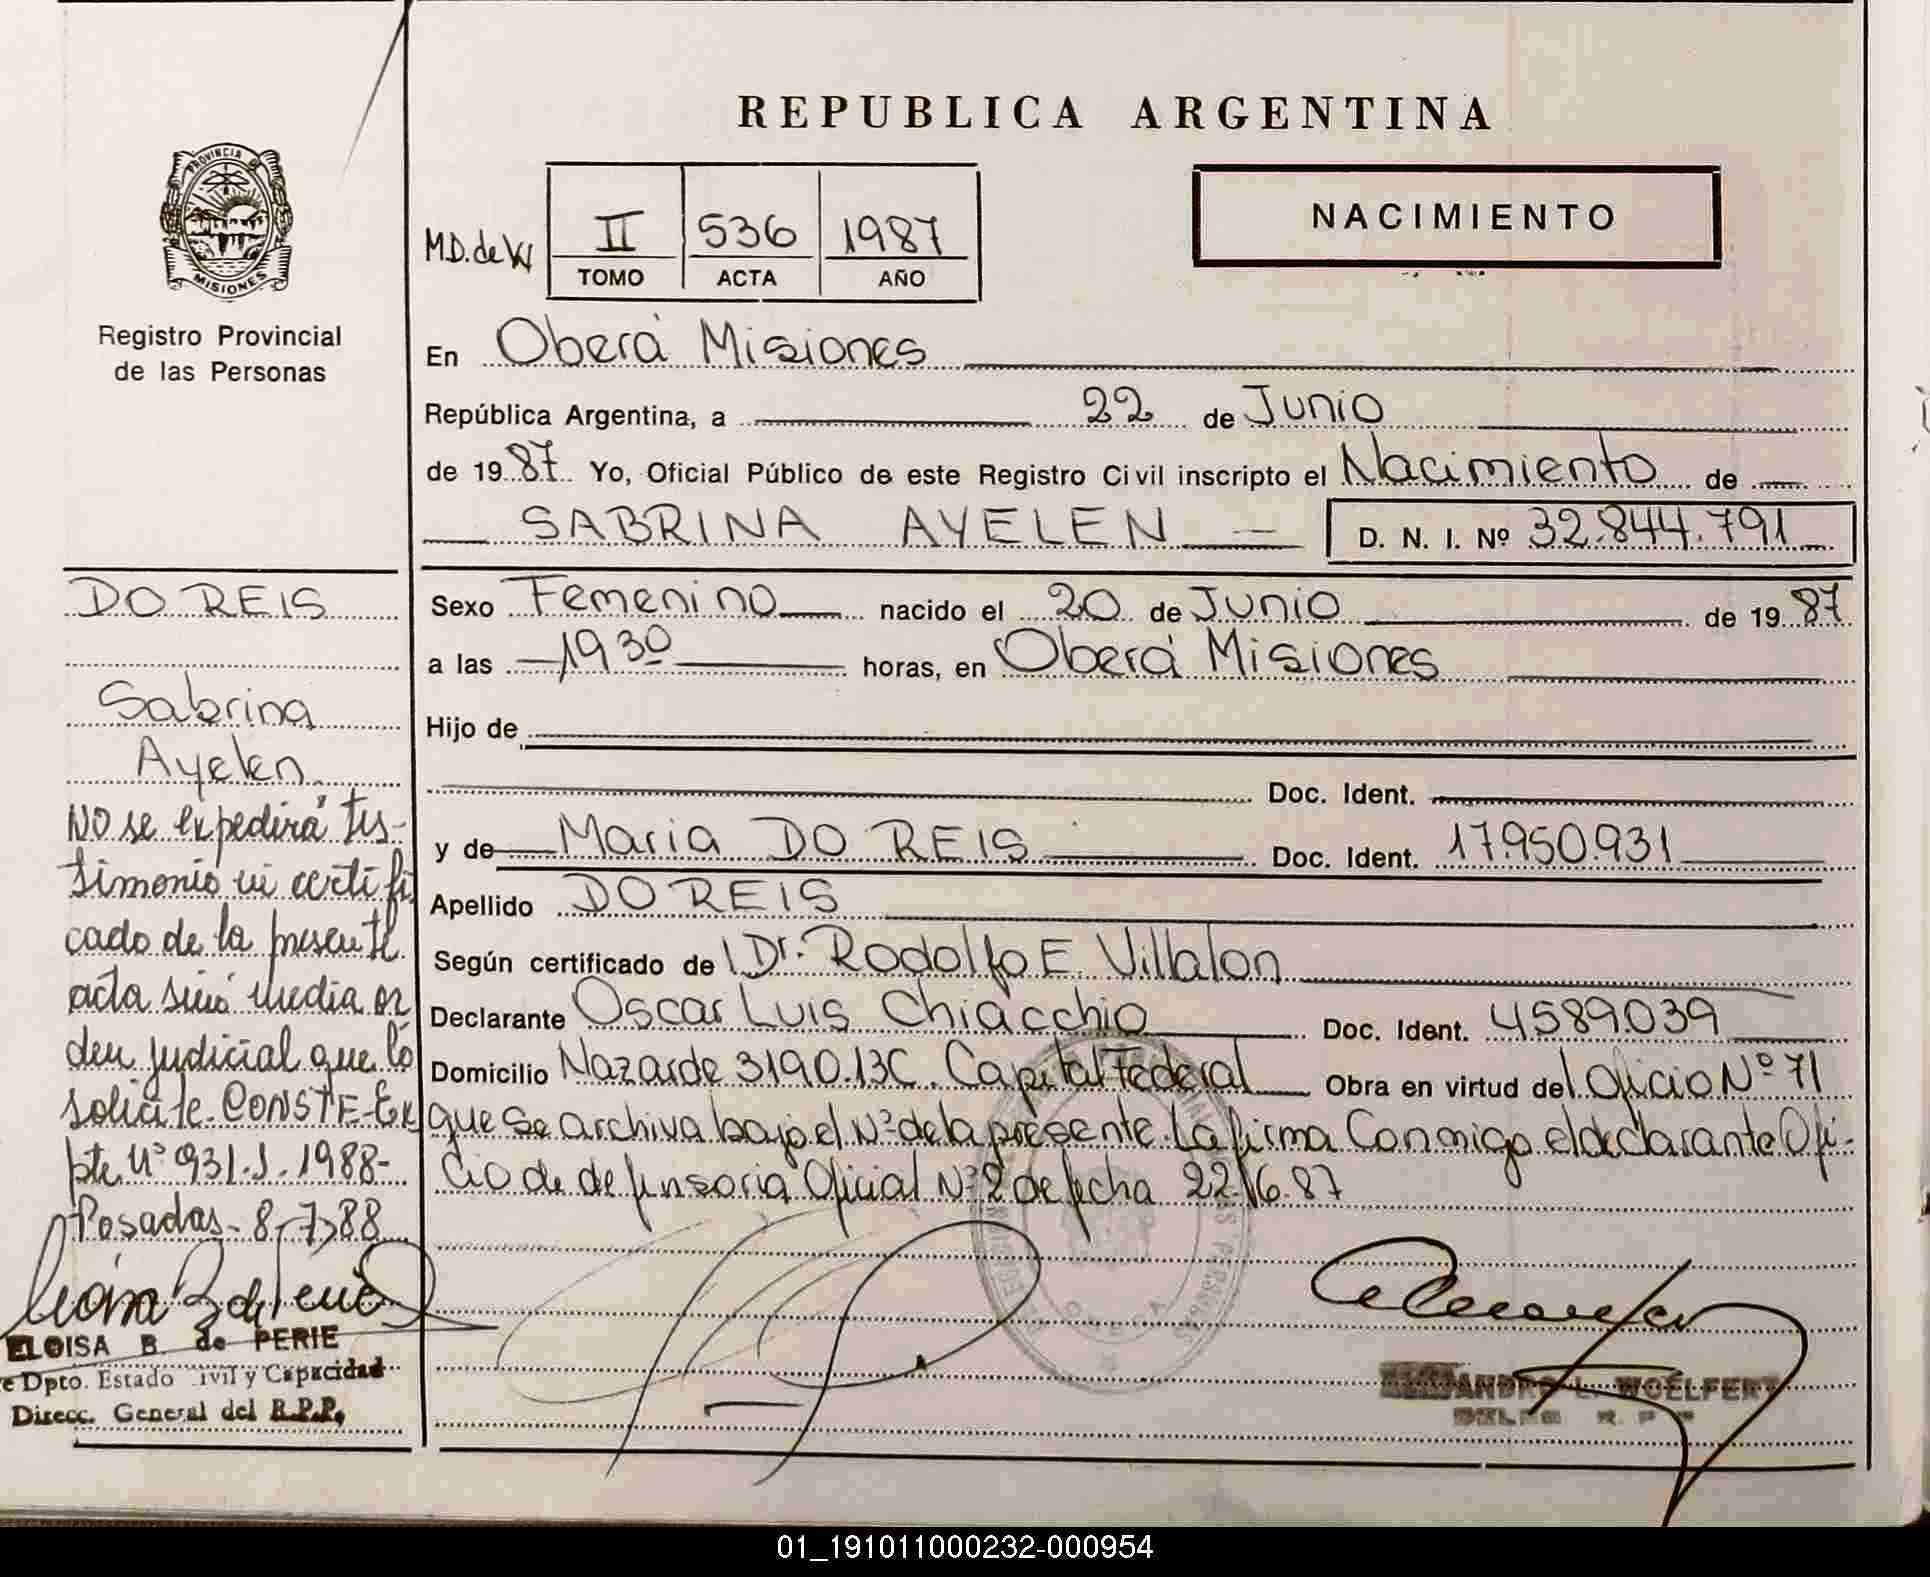 REPUBLICA ARGENTINA
PROVINCIA D
MISIONES
Registro Provincial
de las Personas
M.D. de W
II 536 1987
TOMO ACTA AÑO
NACIMIENTO
En Oberá Misiones
República Argentina, a 22 de Junio
de 1987 Yo, Oficial Público de este Registro Civil inscripto el Nacimiento de
SABRINA AYELEN D. N. I. Nº 32.844.791
Sexo Femenino nacido el 20 de Junio de 1987
a las 1930 horas, en Oberá Misiones
Hijo de
Doc. Ident.
y de Maria DO REIS Doc. Ident. 17.950.931
Apellido DO REIS
Según certificado de l Dr. Rodolfo E. Villalon
Declarante Oscar Luis Chiacchio Doc. Ident. 4589.039
Domicilio Nazarde 3190.13C. Capital Federal Obra en virtud del Oficio Nº 71
que se archiva bajo el Nº de la presente. La firma Conmigo el declarante Ofi-
cio de defensoria Oficial Nº 2 de fecha 22/6.87
DO REIS
Sabrina
Ayelen
NO se expedirá tes-
timonio ni certifi
cado de la presente
acta sinó media or
den judicial que lo
solicite. CONSTE-Ex
pte. Nº 931.J.1988-
Posadas- 8-7-88
ELOISA B. de PERIE
e Dpto. Estado Civil y Capacidad
Direcc. General del R.P.P.
ANDRO L. WOELFERT
01_191011000232-000954